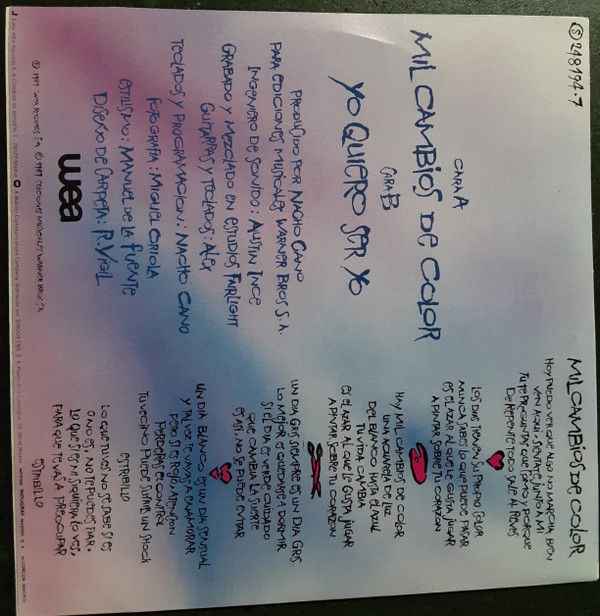 Ⓢ 248194-7
CARA A
MIL CAMBIOS DE COLOR
CARA B
YO QUIERO SER YO
PRODUCIDO POR NACHO CANO
PARA EDICIONES MUSICALES WARNER BROS S.A.
INGENIERO DE SONIDO: AUSTIN INCE
GRABADO Y MEZCLADO EN ESTUDIOS FAIRLIGHT
GUITARRAS Y TECLADOS: ALEX
TECLADOS Y PROGRAMACION: NACHO CANO
FOTOGRAFIA: MIGUEL ORIOLA
ESTILISMO: MANUEL DE LA FUENTE
DISEÑO DE CARPETA: R. VIGIL
wea
MIL CAMBIOS DE COLOR
HOY PUEDO VER QUE ALGO NO MARCHA BIEN
VEN AQUI, SIENTATE JUNTO A MI
TU TE PREGUNTAS QUE COMO Y PORQUE
DE REPENTE TODO SALE AL REVES
LOS DIAS TIENEN SU PROPIO COLOR
NUNCA SABES LO QUE PUEDE PASAR
ES EL AZAR AL QUE LE GUSTA JUGAR
A PINTAR SOBRE TU CORAZON
HAY MIL CAMBIOS DE COLOR
UNA ACUARELA DE LUZ
DEL BLANCO HASTA EL AZUL
TU VIDA CAMBIA
ES EL AZAR AL QUE LE GUSTA JUGAR
A PINTAR SOBRE TU CORAZON
UN DIA GRIS SIEMPRE ES UN DIA GRIS
LO MEJOR ES QUEDARSE A DORMIR
SI EL DIA ES VERDE CUIDADO
QUE CAMBIA LA SUERTE
ES ASI, NO SE PUEDE EVITAR
UN DIA BLANCO ES UN DIA SENSUAL
Y TAL VEZ TE VAYAS A ENAMORAR
PERO SI ES ROJO ATENCION
PERDERAS EL CONTROL
TU VECINO PUEDE SUFRIR UN SHOCK
ESTRIBILLO
LO QUE TU VES NO SE SABE SI ES
O NO ES, NO TE PUEDES FIAR.
LO QUE SI ES NI SIQUIERA LO VES,
PARA QUE TE VAS A PREOCUPAR
ESTRIBILLO